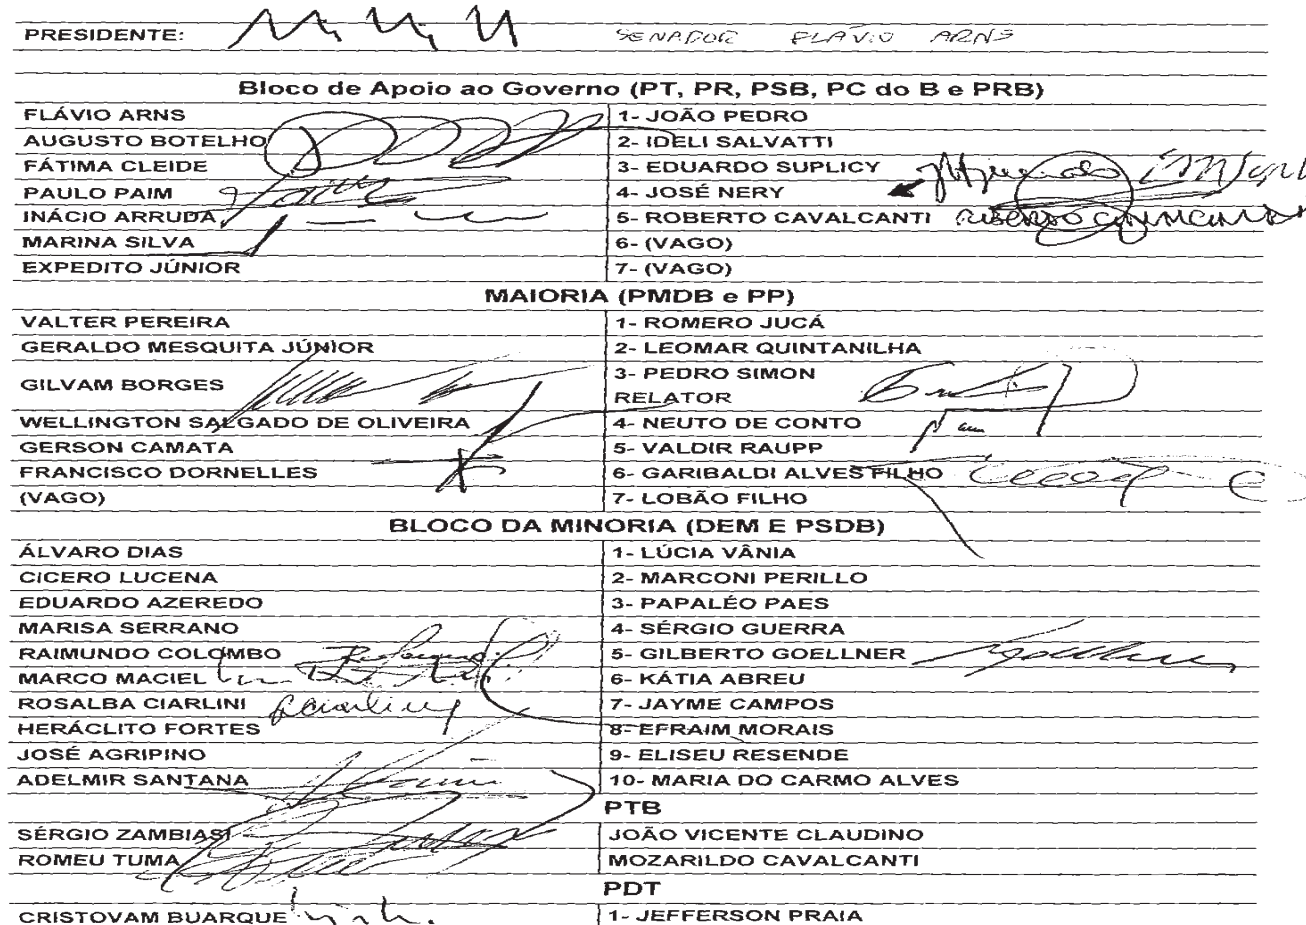 PRESIDENTE: SENADOR FLÁVIO ARNS
Bloco de Apoio ao Governo (PT, PR, PSB, PC do B e PRB)
FLÁVIO ARNS 1- JOÃO PEDRO
AUGUSTO BOTELHO 2- IDELI SALVATTI
FÁTIMA CLEIDE 3- EDUARDO SUPLICY
PAULO PAIM 4- JOSÉ NERY
INÁCIO ARRUDA 5- ROBERTO CAVALCANTI ROBERTO CAVALCANTI
MARINA SILVA 6- (VAGO)
EXPEDITO JÚNIOR 7- (VAGO)
MAIORIA (PMDB e PP)
VALTER PEREIRA 1- ROMERO JUCÁ
GERALDO MESQUITA JÚNIOR 2- LEOMAR QUINTANILHA
GILVAM BORGES 3- PEDRO SIMON
RELATOR
WELLINGTON SALGADO DE OLIVEIRA 4- NEUTO DE CONTO
GERSON CAMATA 5- VALDIR RAUPP
FRANCISCO DORNELLES 6- GARIBALDI ALVES FILHO
(VAGO) 7- LOBÃO FILHO
BLOCO DA MINORIA (DEM E PSDB)
ÁLVARO DIAS 1- LÚCIA VÂNIA
CICERO LUCENA 2- MARCONI PERILLO
EDUARDO AZEREDO 3- PAPALÉO PAES
MARISA SERRANO 4- SÉRGIO GUERRA
RAIMUNDO COLOMBO 5- GILBERTO GOELLNER
MARCO MACIEL 6- KÁTIA ABREU
ROSALBA CIARLINI 7- JAYME CAMPOS
HERÁCLITO FORTES 8- EFRAIM MORAIS
JOSÉ AGRIPINO 9- ELISEU RESENDE
ADELMIR SANTANA 10- MARIA DO CARMO ALVES
PTB
SÉRGIO ZAMBIASI JOÃO VICENTE CLAUDINO
ROMEU TUMA MOZARILDO CAVALCANTI
PDT
CRISTOVAM BUARQUE 1- JEFFERSON PRAIA